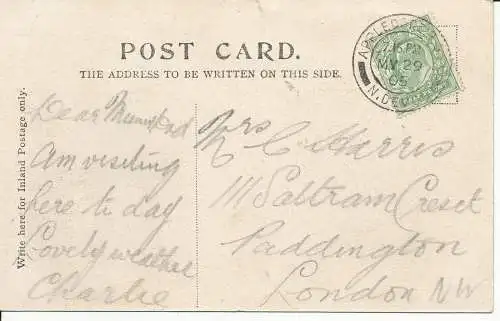 POST CARD.
THE ADDRESS TO BE WRITTEN ON THIS SIDE.
Write here for Inland Postage only.
APPLEDORE
7.15 PM
MY 29
05
N.DEVON
Dear
Am visiting
here to day
Lovely weather
Charlie
Mrs C Harris
111 Saltram Creset
Paddington
London NW